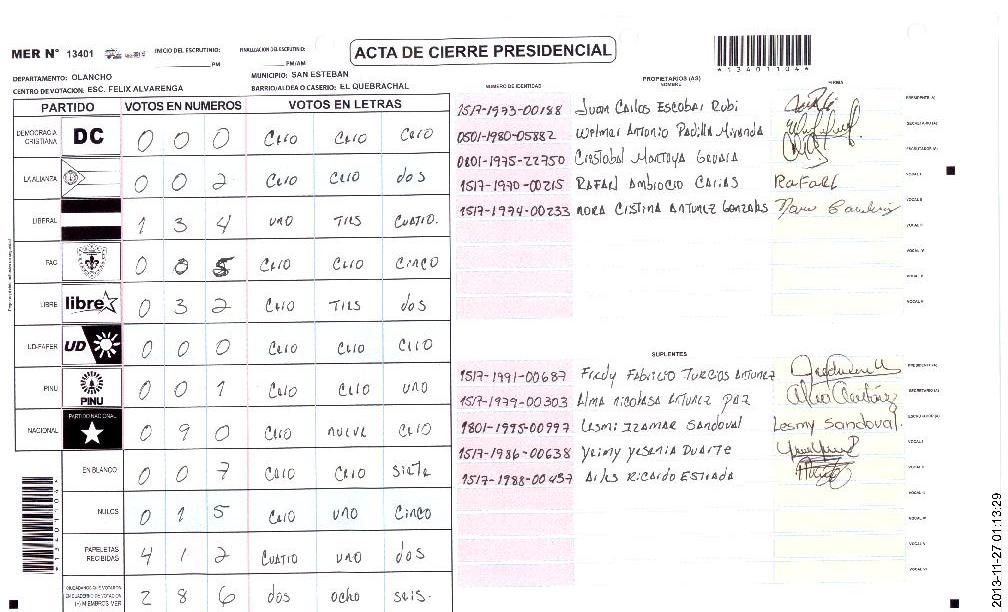 MER Nº 13401 INICIO DEL ESCRUTINIO: ________ PM FINALIZACION DEL ESCRUTINIO: ________ PM/AM
ACTA DE CIERRE PRESIDENCIAL
*1340110 4*
DEPARTAMENTO: OLANCHO MUNICIPIO: SAN ESTEBAN
CENTRO DE VOTACION: ESC. FELIX ALVARENGA BARRIO/ALDEA O CASERIO: EL QUEBRACHAL
PARTIDO VOTOS EN NUMEROS VOTOS EN LETRAS
DEMOCRACIA CRISTIANA DC 0 0 0 Cero Cero Cero
LA ALIANZA 0 0 2 Cero Cero dos
LIBERAL 1 3 4 uno Tres Cuatro.
PAC 0 0 5 Cero Cero Cinco
LIBRE libre 0 3 2 Cero Tres dos
UD-FAPER UD 0 0 0 Cero Cero Cero
PINU PINU 0 0 1 Cero Cero uno
NACIONAL PARTIDO NACIONAL 0 9 0 Cero nueve Cero
EN BLANCO 0 0 7 Cero Cero Siete
NULOS 0 1 5 Cero uno Cinco
PAPELETAS RECIBIDAS 4 1 2 Cuatro uno dos
CIUDADANOS QUE VOTARON EN CUADERNO DE VOTACION (+) MIEMBROS MER 2 8 6 dos ocho seis.
NUMERO DE IDENTIDAD PROPIETARIOS (AS) NOMBRE FIRMA
1517-1973-00188 Juan Carlos Escobar Rubi PRESIDENTE (A)
0501-1980-05882 Welmer Antonio Padilla Miranda SECRETARIO (A)
0801-1975-22750 Cristobal Montoya ESCRUTADOR (A)
1517-1970-00215 Rafael Ambrocio Carias Rafael VOCAL I
1517-1974-00233 Nora Cristina Antunez Gonzales VOCAL II
SUPLENTES
1517-1991-00687 Fredy Fabricio Turcios Antunez PRESIDENTE (A)
1517-1979-00303 Alma Nicolasa Antunez Paz SECRETARIO (A)
1801-1975-00997 Lesmi Izamar Sandoval Lesmy Sandoval. ESCRUTADOR (A)
1517-1986-00638 Yeimy Yesenia Duarte VOCAL I
1517-1988-00457 Ricardo Estrada VOCAL II
2013-11-27 01:13:29